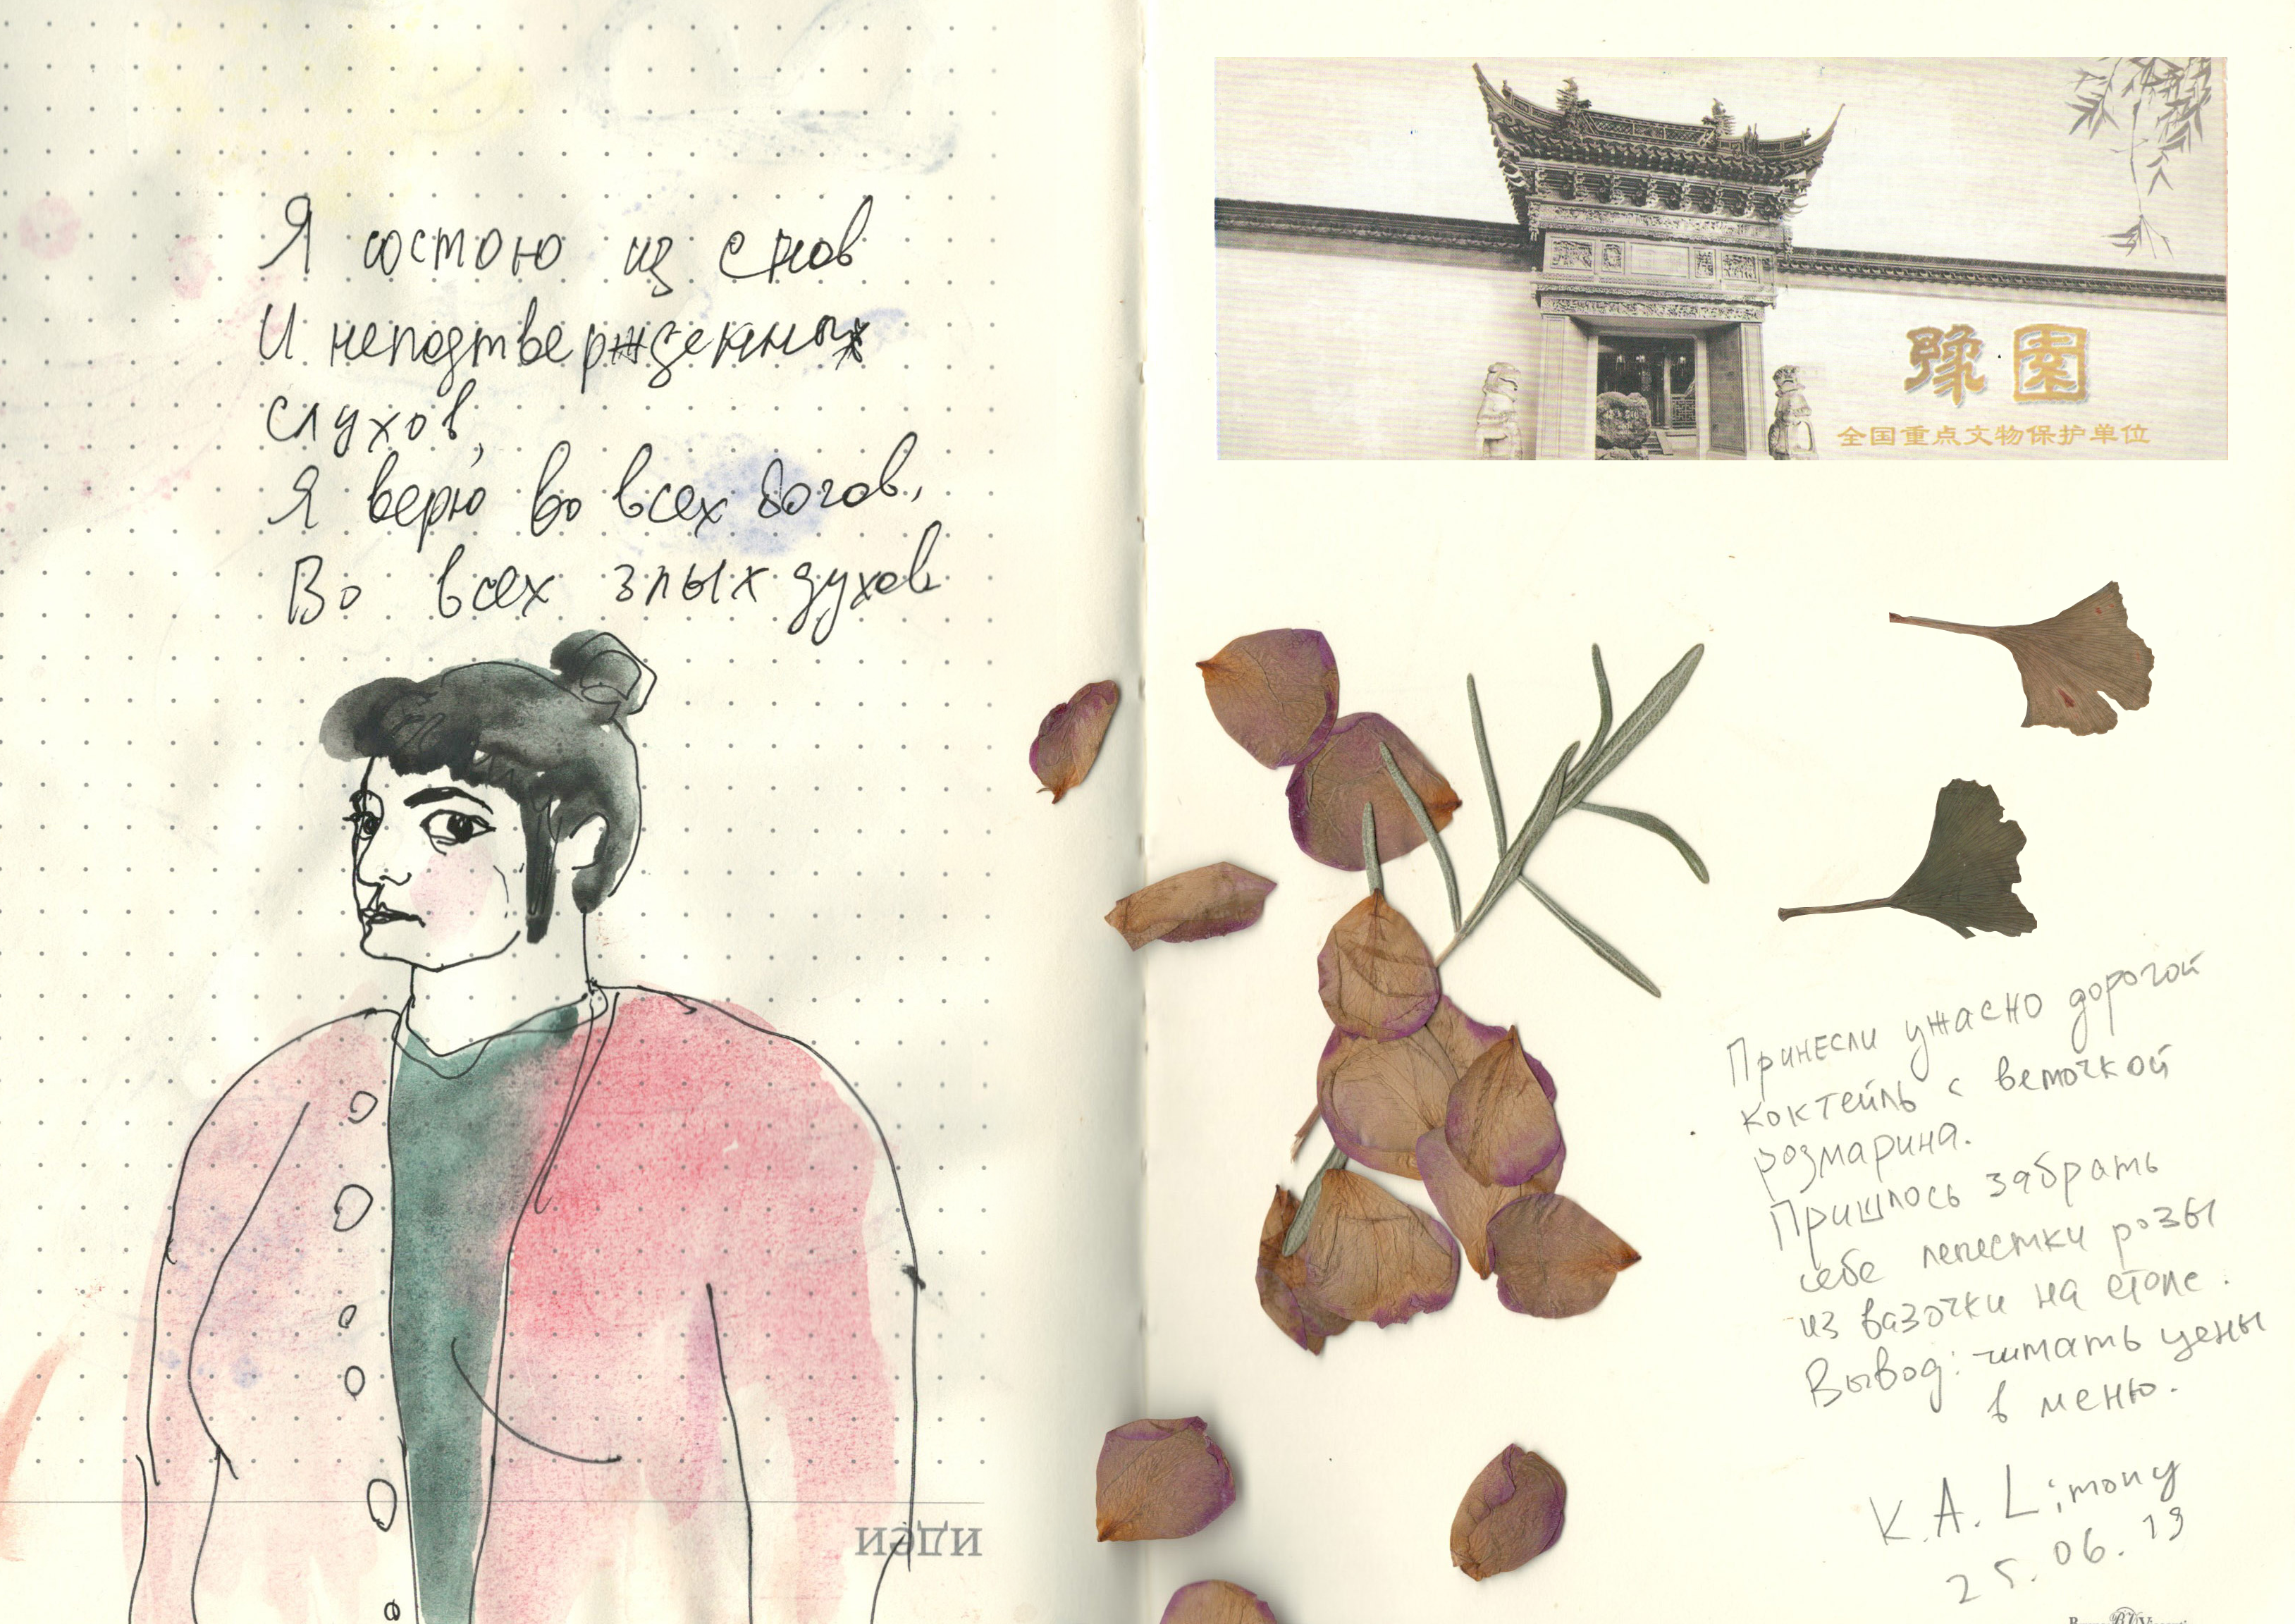 Я состою из снов
И неподтвержденных
слухов,
Я верю во всех богов,
Во всех злых духов
идеи
豫園
全国重点文物保护单位
Принесли ужасно дорогой
коктейль с веточкой
розмарина.
Пришлось забрать
себе лепестки розы
из вазочки на столе.
Вывод: читать цены
в меню.
K.A. Limony
25.06.19